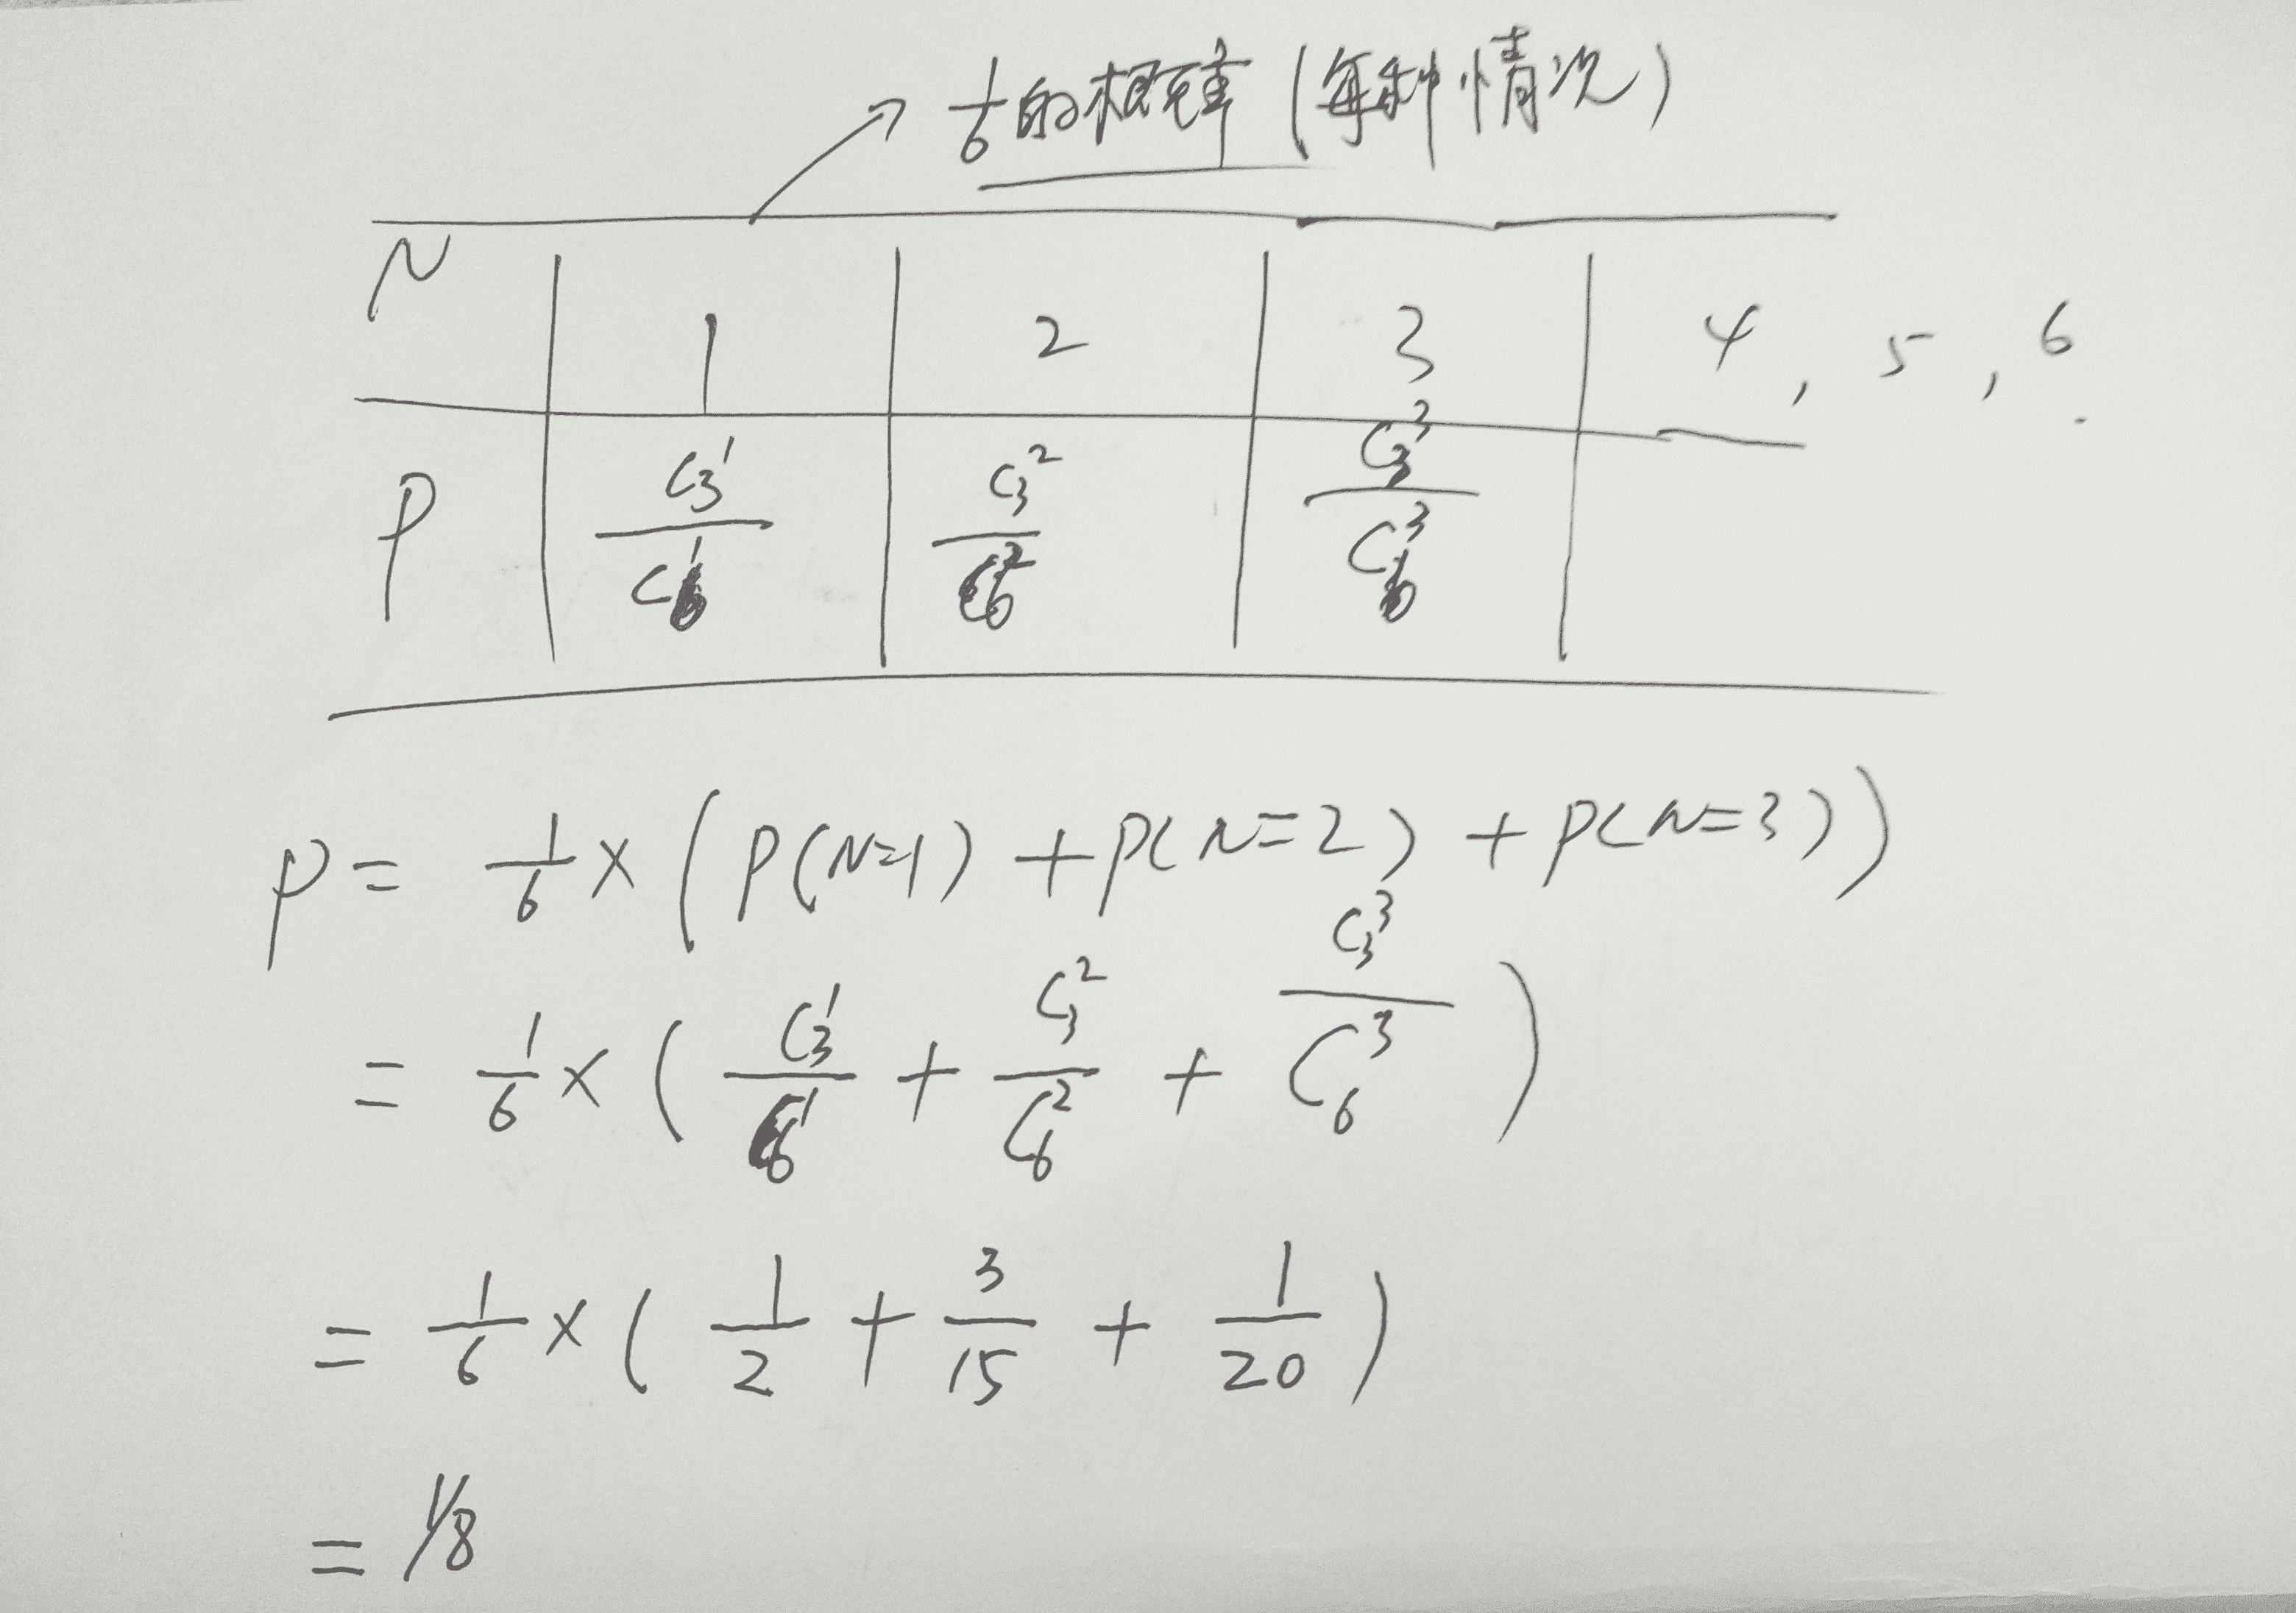 1/6的概率(每种情况)
N 1 2 3 4, 5, 6.
P C₃¹/C₆¹ C₃²/C₆² C₃³/C₆³
P = 1/6 × (P(N=1) + P(N=2) + P(N=3))
= 1/6 × (C₃¹/C₆¹ + C₃²/C₆² + C₃³/C₆³)
= 1/6 × (1/2 + 3/15 + 1/20)
= 1/8